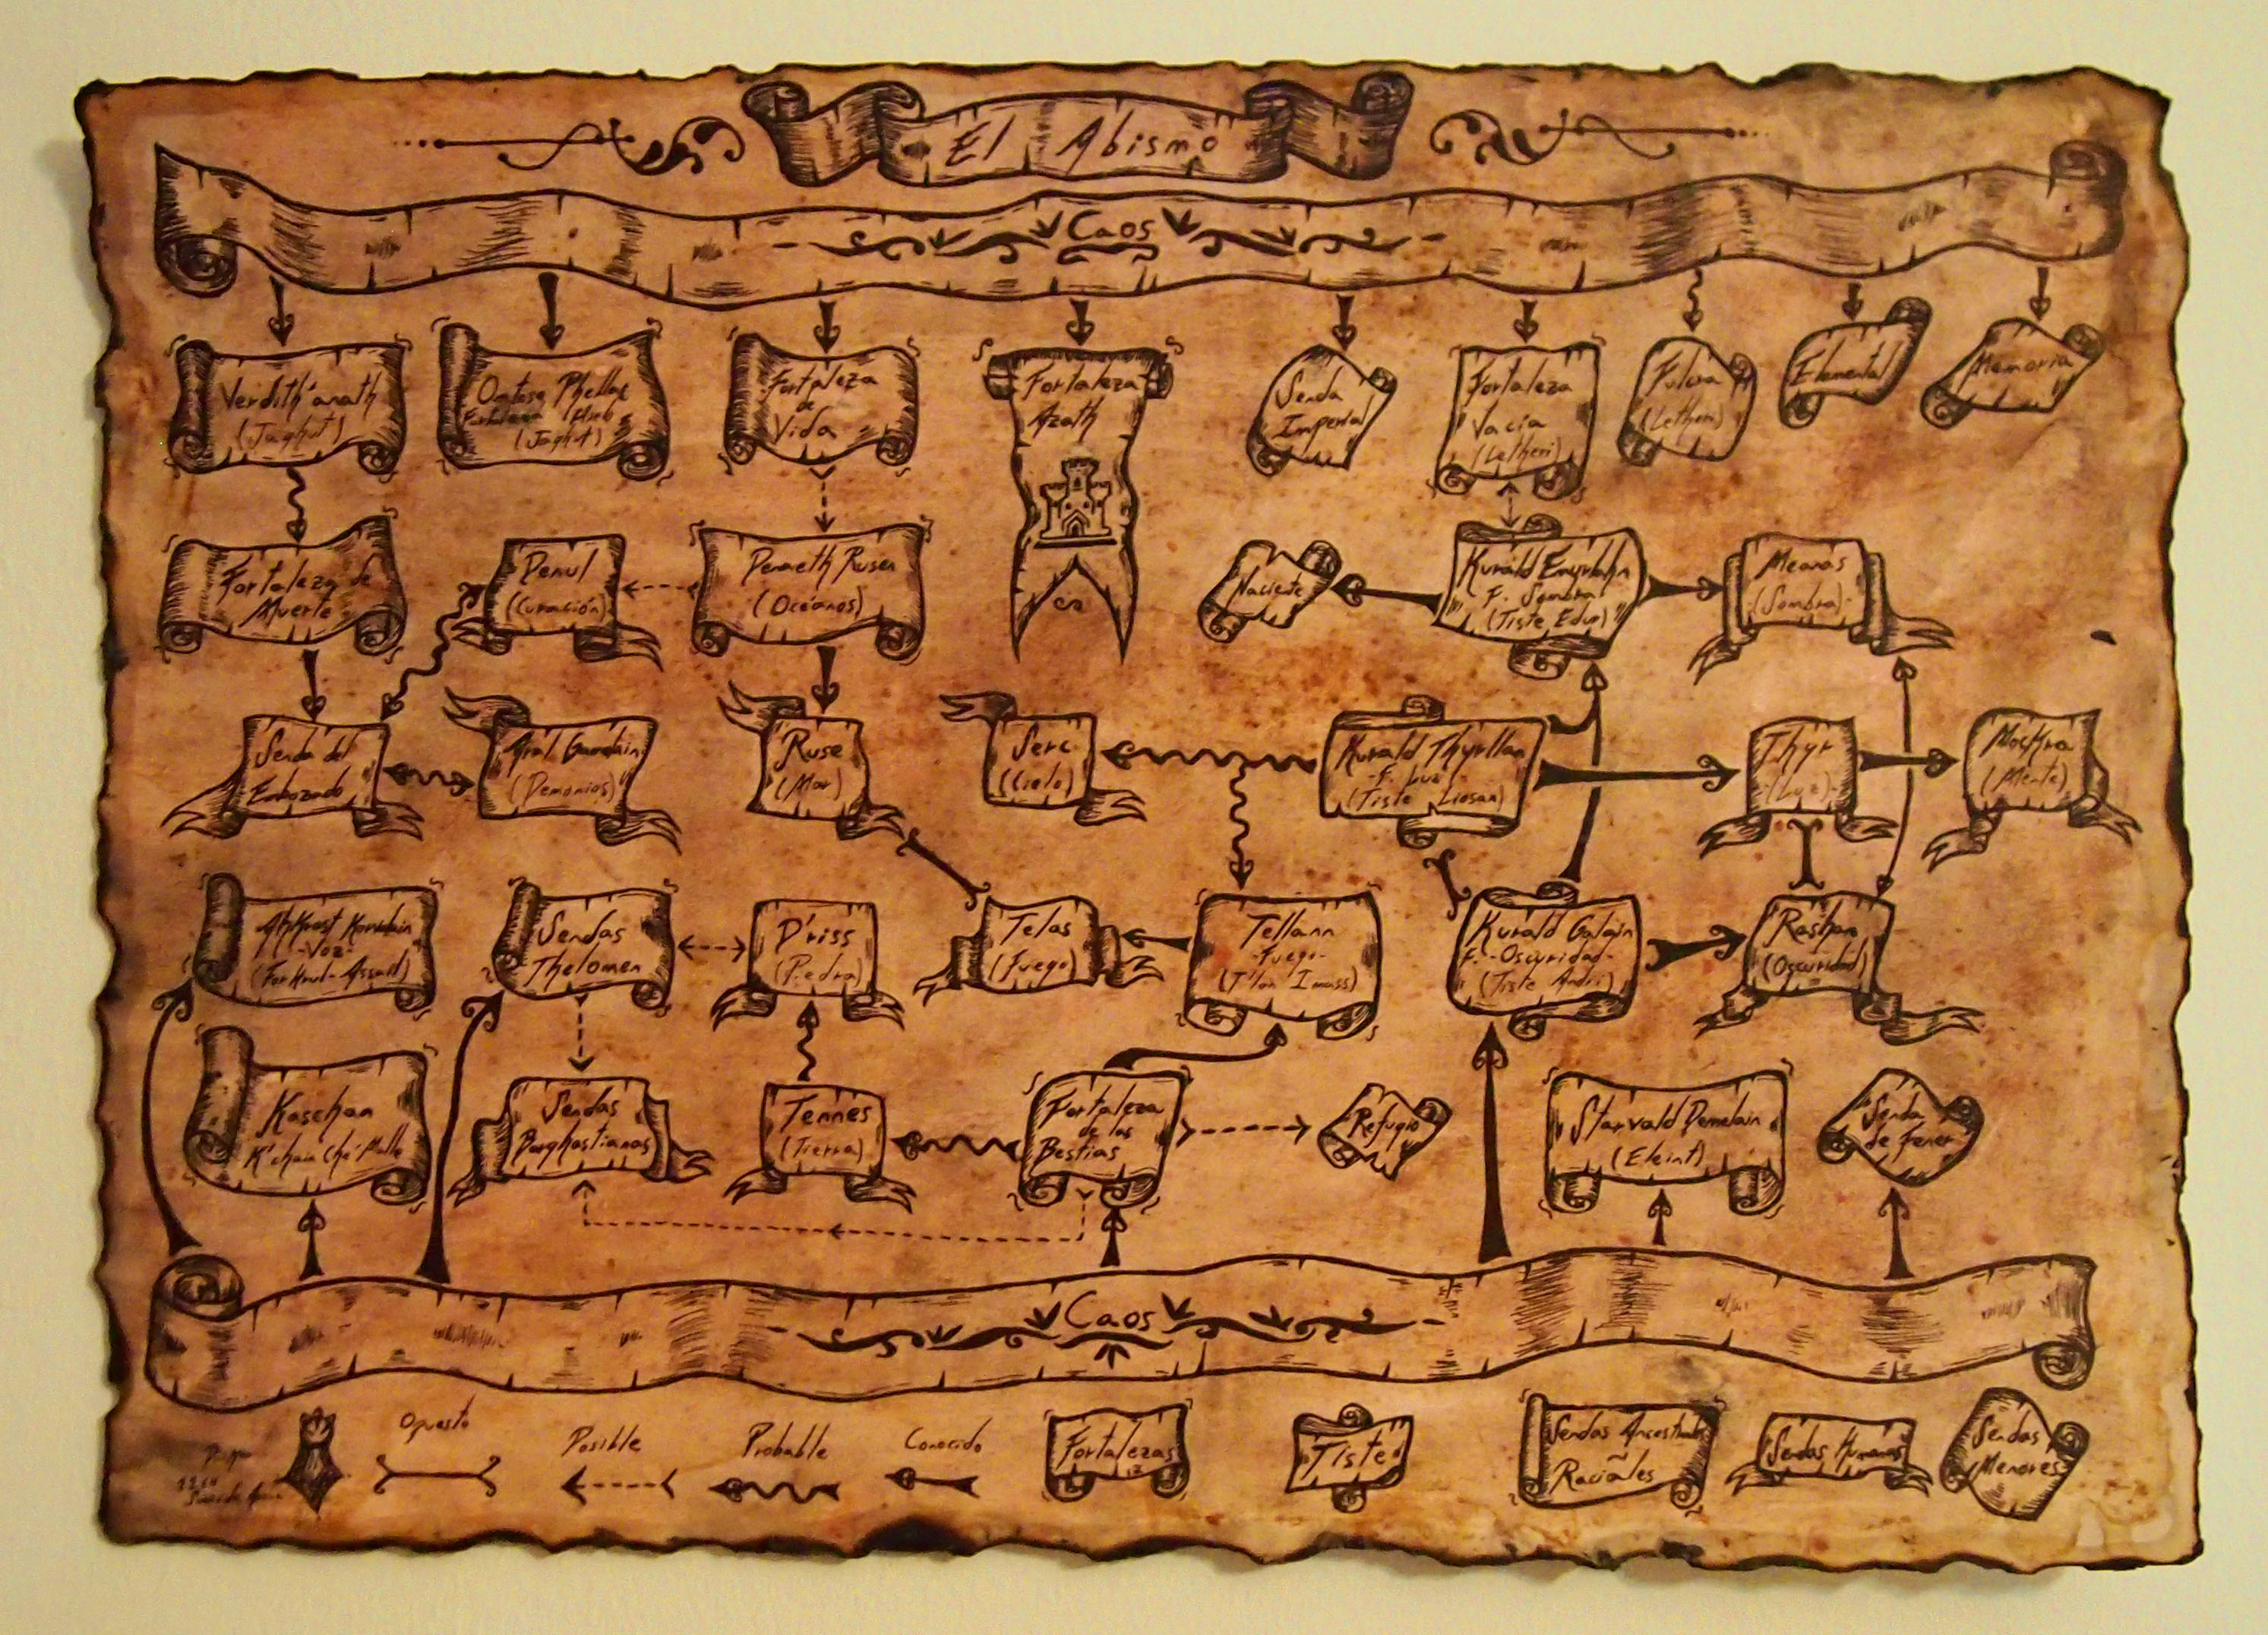 El Abismo
Caos
Verdith'anath
(Jaghut)
Omtose Phellac
Fortaleza Hielo
(Jaghut)
Fortaleza
de
Vida
Fortaleza
Azath
Senda
Imperial
Fortaleza
Vacia
(Letheri)
Fulcra
(Letheri)
Elemental
Memoria
Fortaleza de
Muerte
Denul
(Curación)
Denaeth Rusen
(Océanos)
Naciente
Kurald Emurlahn
F. Sombra
(Tiste Edur)
Meanas
(Sombra)
Senda del
Embozado
Aral Gamelain
(Demonios)
Ruse
(Mar)
Serc
(Cielo)
Kurald Thyrllan
-F. Luz-
(Tiste Liosan)
Thyr
(Luz)
Mockra
(Mente)
Ahkrast Korvalain
-Voz-
(Forkrul-Assail)
Sendas
Thelomen
D'riss
(Piedra)
Telas
(Fuego)
Tellann
-Fuego-
(T'lan Imass)
Kurald Galain
F.-Oscuridad-
(Tiste Andii)
Rashan
(Oscuridad)
Kaschan
K'chain Ché'Malle
Sendas
Barghastianas
Tennes
(Tierra)
Fortaleza
de las
Bestias
Refugio
Starvald Demelain
(Eleint)
Senda
de Fener
Caos
Opuesto
Posible
Probable
Conocido
Fortalezas
Tiste
Sendas Ancestrales
Raciales
Sendas Humanas
Sendas
Menores